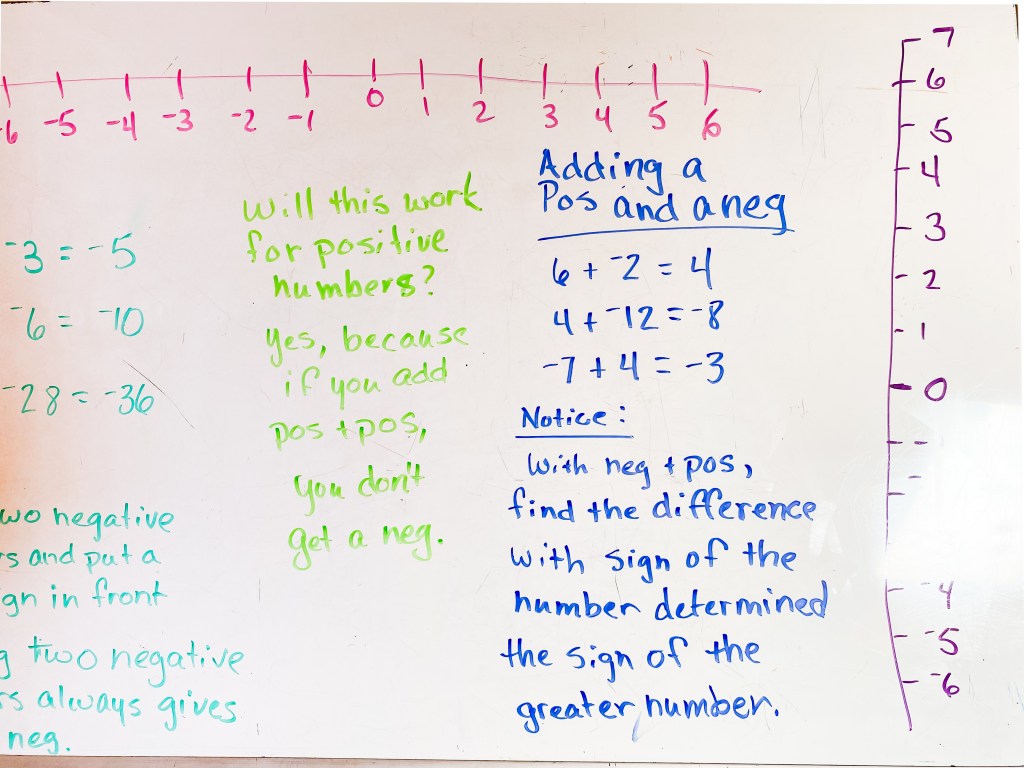 -6 -5 -4 -3 -2 -1 0 1 2 3 4 5 6
-3 = -5
-6 = -10
-28 = -36
two negative
and put a
in front
two negative
always gives
neg.
Will this work
for positive
numbers?
Yes, because
if you add
pos + pos,
you don't
get a neg.
Adding a
Pos and a neg
6 + -2 = 4
4 + -12 = -8
-7 + 4 = -3
Notice:
With neg + pos,
find the difference
with sign of the
number determined
the sign of the
greater number.
7
6
5
4
3
2
1
0
-
-
-4
-5
-6